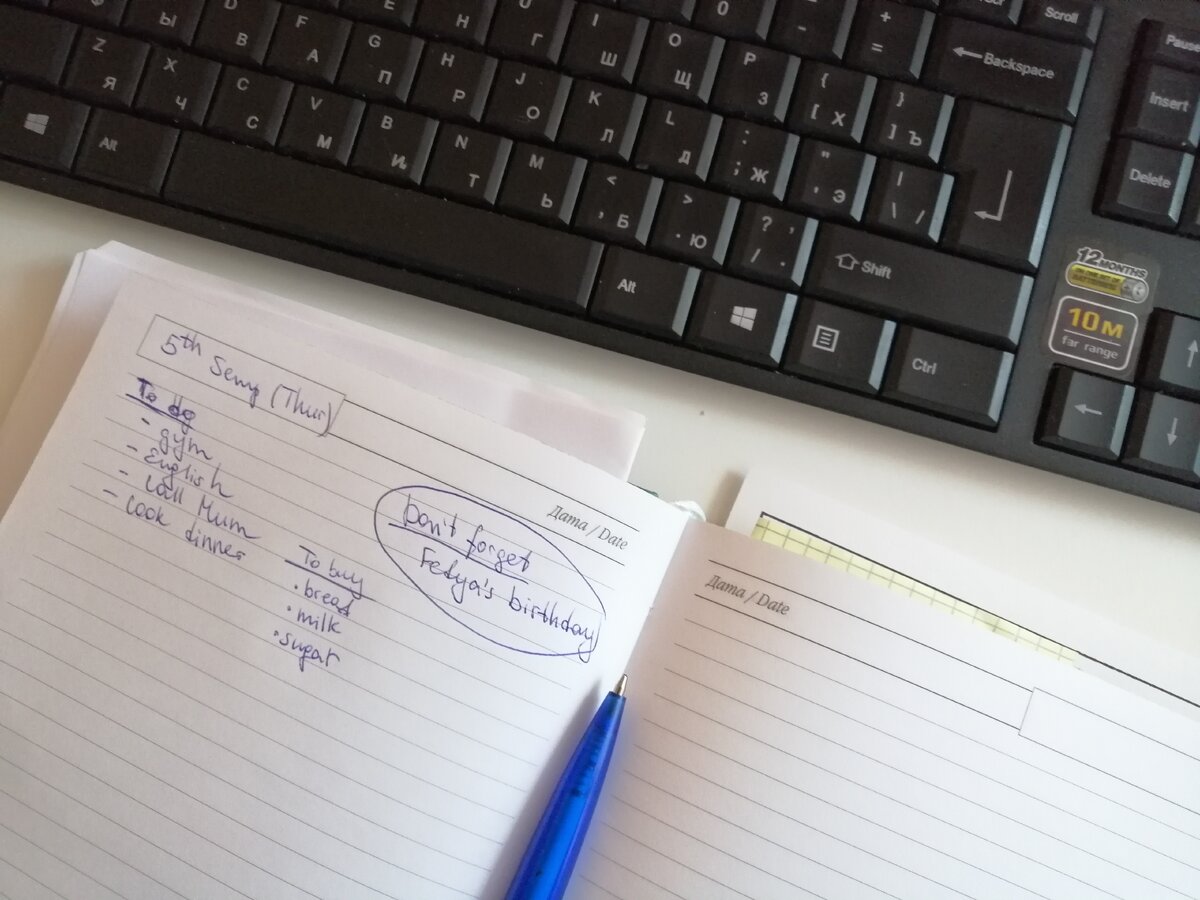 Scroll
0
-
+
=
Backspace
D
В
F
А
G
П
H
Р
J
О
K
Л
L
Д
: ; Ж
" ' Э
| \ /
Insert
Delete
O
Щ
P
З
{ [ Х
} ] Ъ
І
Ш
Г
Н
Е
Ы
Z
Я
X
Ч
C
С
V
М
B
И
N
Т
M
Ь
< , Б
> . Ю
? , / .
Shift
Alt
Alt
Ctrl
12 MONTHS
10M
far range
5th Semp (Thur)
To do
- gym
- English
- Call Mum
- Cook dinner
To buy
• bread
• milk
• sugar
Don't forget
Fedya's birthday
Дата / Date
Дата / Date